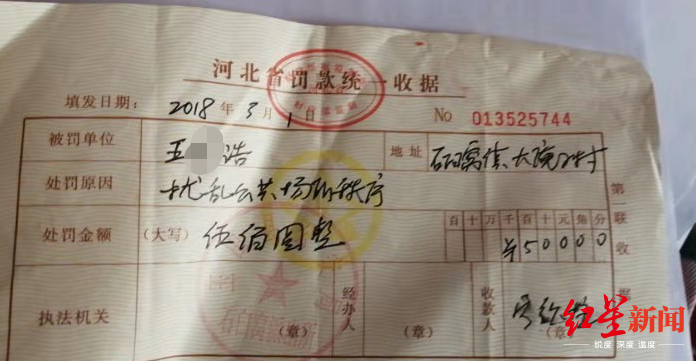 河北省罚款统一收据
填发日期: 2018年3月1日 No 013525744
被罚单位 王 浩 地址 大院2村
处罚原因 扰乱公共场所秩序
处罚金额 (大写) 伍佰圆整 百十万千百十元角分 ¥50000
执法机关 (章) 经办人 (章) 收款人 (章)
第一联 收据
红星新闻
锐度 深度 温度